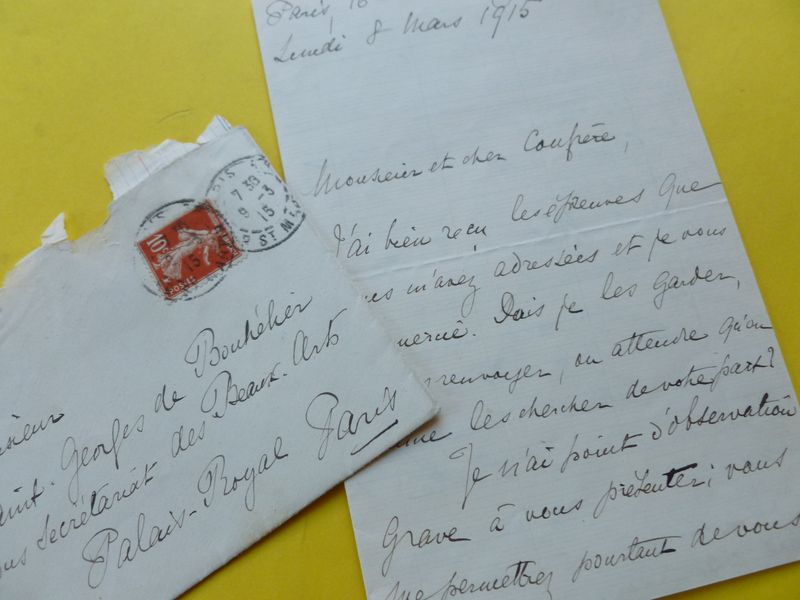 Paris,
Lundi 8 Mars 1915
Monsieur et cher Confrère,
J'ai bien reçu les épreuves que
m'avez adressées et je vous
Dois je les garder,
renvoyer, ou attendre qu'on
les chercher de votre part?
Je n'ai point d'observation
grave à vous présenter; vous
me permettrez pourtant de vous
10c
POSTES
7 30
9 - 3
15
Georges de Bouhélier
Secrétariat des Beaux-Arts
Palais-Royal Paris